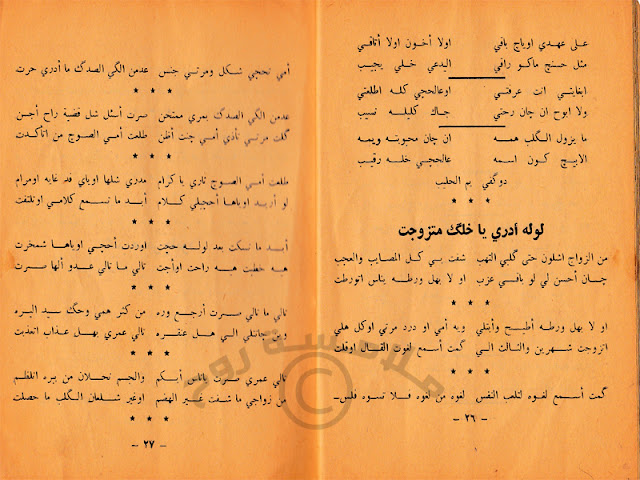 على عهدي اوياج باقي اولا أخون اولا أنافي
مثل حسنج ماكو راقي البدعي خلي يجيب
ابغايتي انت عرفتي اوعالحچي كله اطلعتي
ولا ابوح ان چان رحتي چاك كليله نصيب
ما يزول الگلب همه ان چان محبوبه ويمه
الابيچ كون اسمه عالحچي خله رقيب
دوگفي يم الحليب
* * *
لوله أدري يا خلگ متزوجت
من الزواج اشلون حتى گلبي التهب شفت بي كل المصايب والعجب
چان أحسن لي لو باقي عزب او لا بهل ورطه يناس اتورطت
* * *
او لا بهل ورطه أطيح وأبتلي ويه أمي او درد مرتي اوكل هلي
اتزوجت شهرين والثالث الي گمت أسمع لغوت القال اوقلت
* * *
گمت أسمع لغوه اتلعب النفس لغوه من لغوه فلا تسوه فلس
- ٢٦ -
أمي تحچي شكل ومرتي جنس عدمن الگي الصدگ ما أدري حرت
* * *
عدمن الگي الصدگ بمري ممتحن صرت أسئل شل قضية راح أجن
گلت مرتي تأذي أمي چنت أظن طلعت أمي الصوچ من اتأكدت
* * *
طلعت أمي الصوچ تاري يا كرام مدري شلها اوياي قد غايه اومرام
لو أريد اوياها أحچيلي كلام أبد ما تسمع كلامي اوتلتفت
* * *
أبد ما تسكت بعد لوله حچت اوردت أحچي اوياها شمخرت
هيه خطبت هيه راحت اوأجت تالي ما تالي عدو ألها صرت
* * *
تالي ما تالي صرت أرجع وره من كثر همي وحگ سيد البره
وين جانتلي الي هل عقره تالي عمري بهل عذاب اتعذبت
* * *
تالي عمري صرت ياناس أبكم والجسم نحلان من بره انظلم
من زواجي ما شفت غير الهضم اوغير شلعان الگلب ما حصلت
* * *
- ٢٧ -
ملا نسة روم